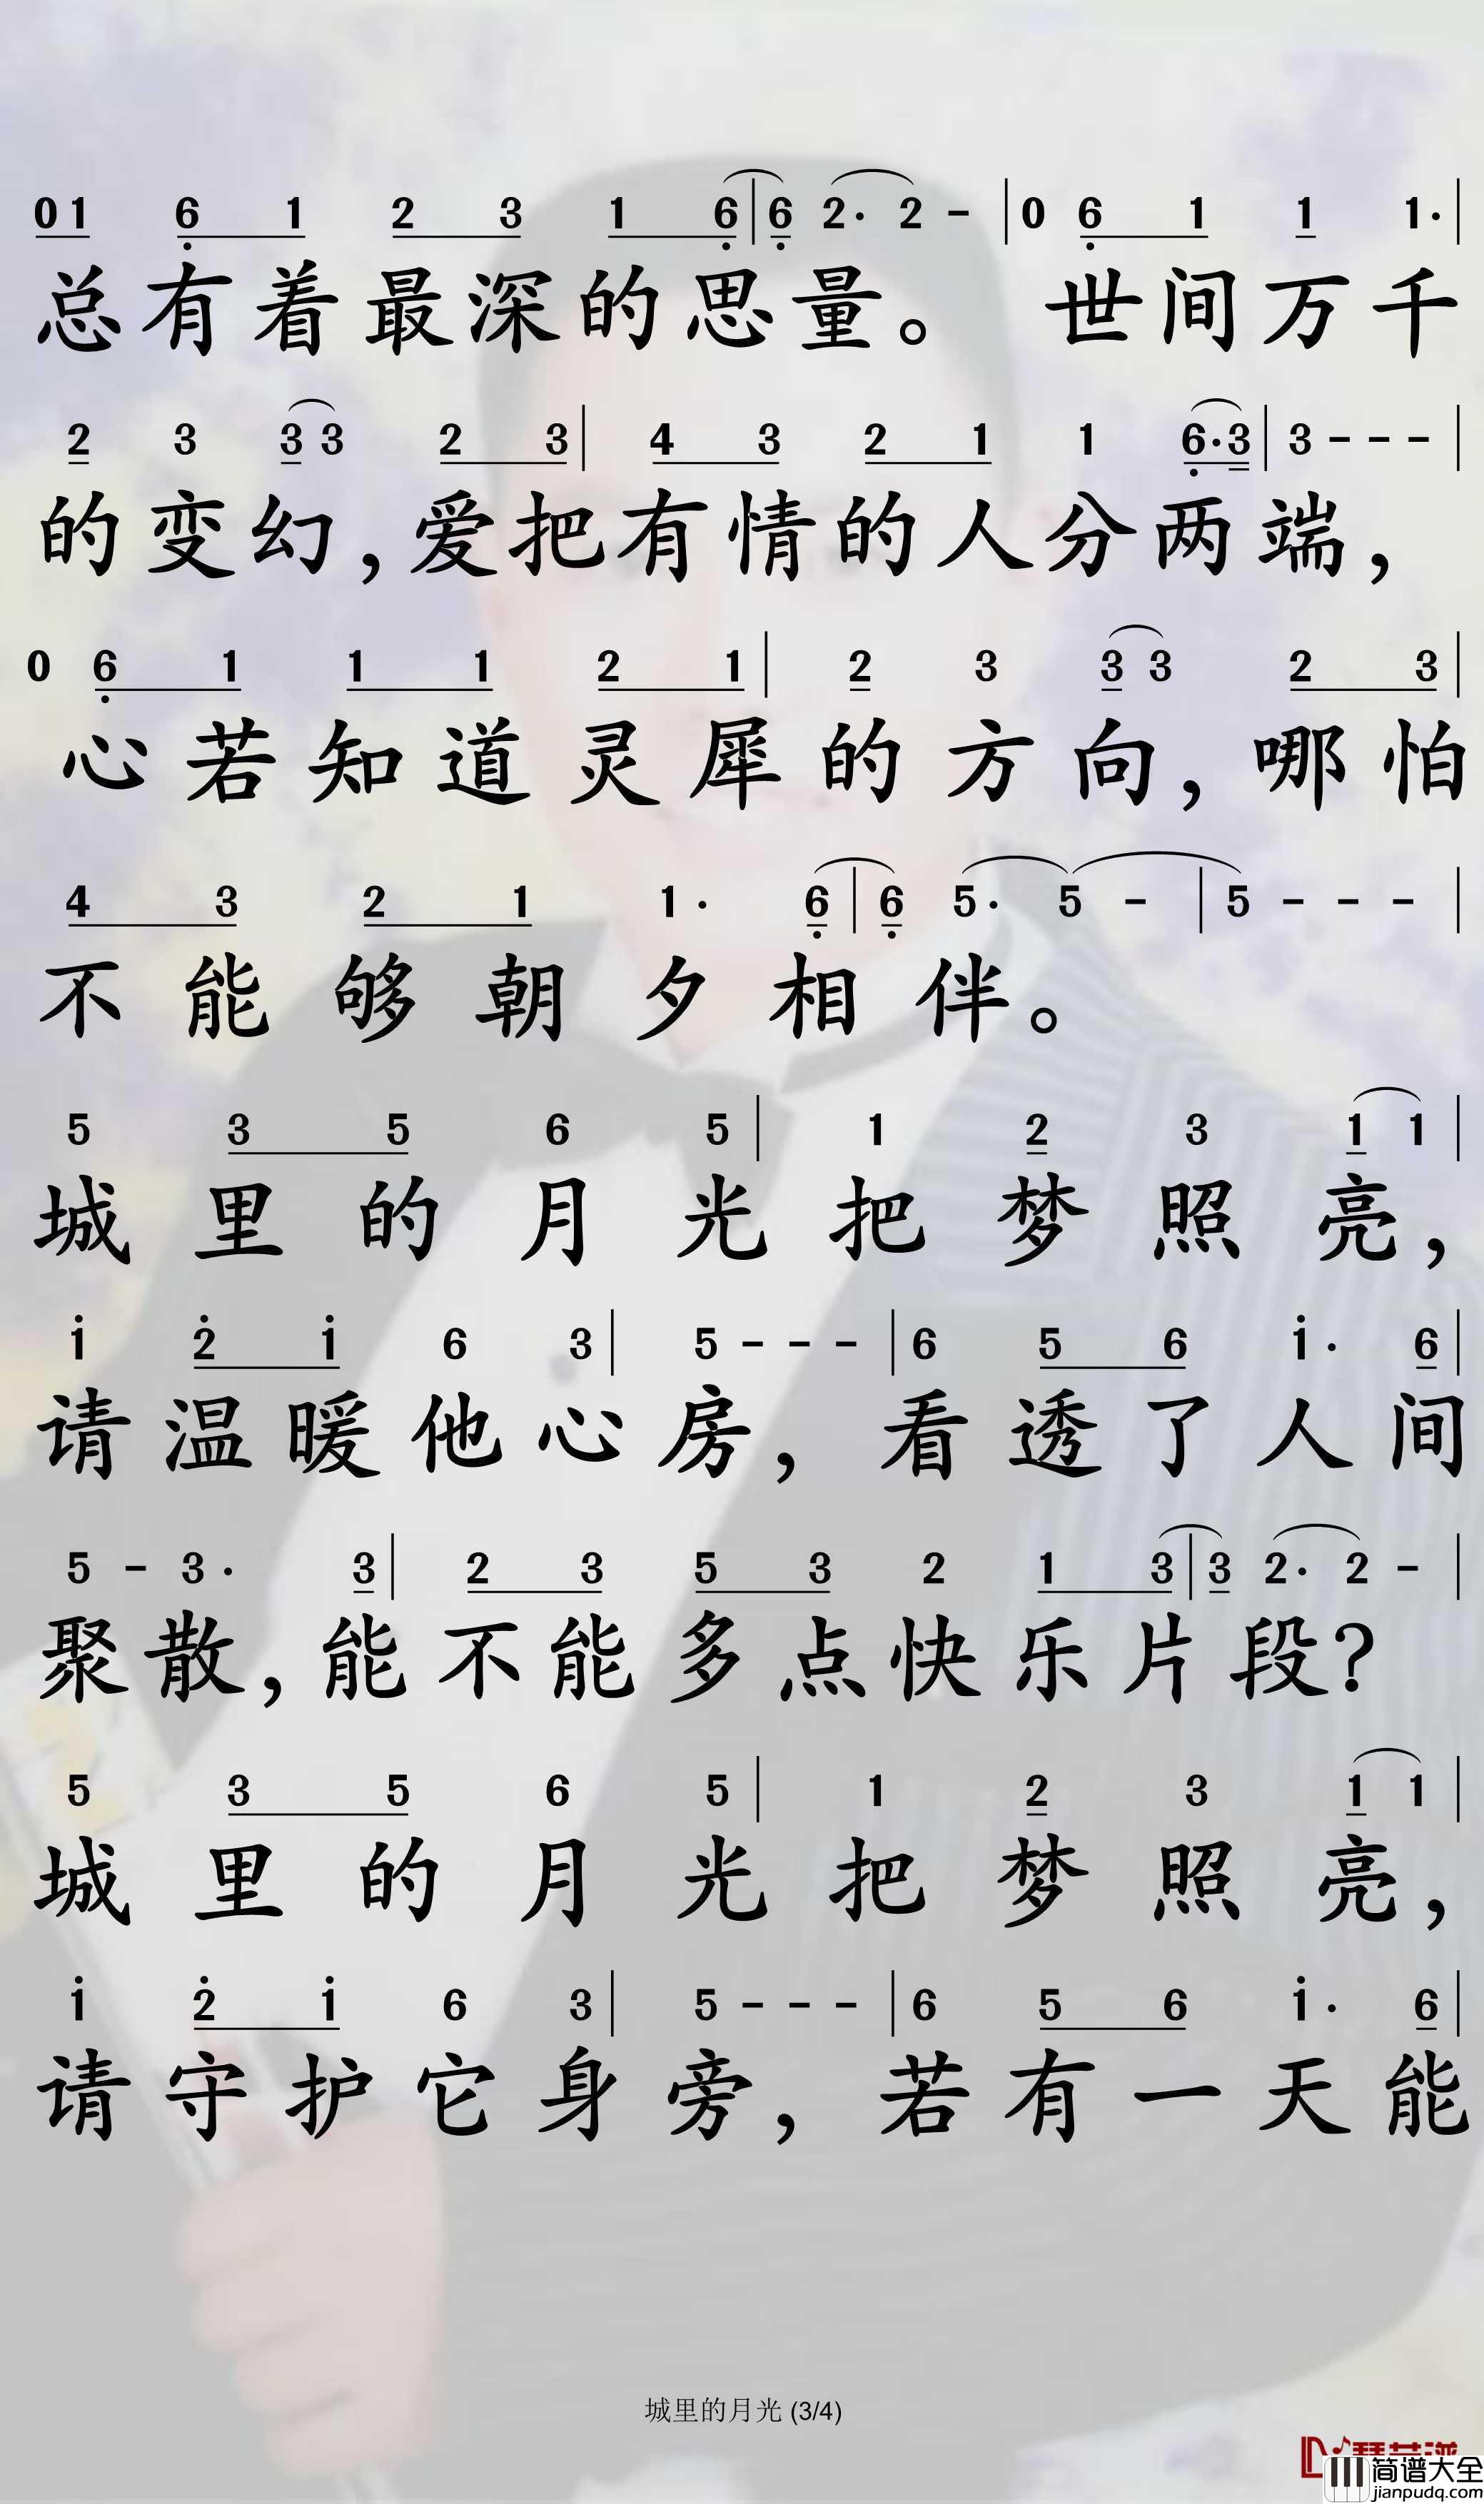 01 6 1 2 3 1 6 | 6 2· 2 - | 0 6 1 1 1· |
总有着最深的思量。 世间万千
2 3 3 3 2 3 | 4 3 2 1 1 6·3 | 3 - - - |
的变幻,爱把有情的人分两端,
0 6 1 1 1 2 1 | 2 3 3 3 2 3 |
心若知道灵犀的方向,哪怕
4 3 2 1 1· 6 | 6 5· 5 - | 5 - - - |
不能够朝夕相伴。
5 3 5 6 5 | 1 2 3 1 1 |
城里的月光把梦照亮,
i 2̇ i 6 3 | 5 - - - | 6 5 6 i· 6 |
请温暖他心房,看透了人间
5 - 3· 3 | 2 3 5 3 2 1 3 | 3 2· 2 - |
聚散,能不能多点快乐片段?
5 3 5 6 5 | 1 2 3 1 1 |
城里的月光把梦照亮,
i 2̇ i 6 3 | 5 - - - | 6 5 6 i· 6 |
请守护它身旁,若有一天能
城里的月光 (3/4)
简谱大全
jianpudq.com